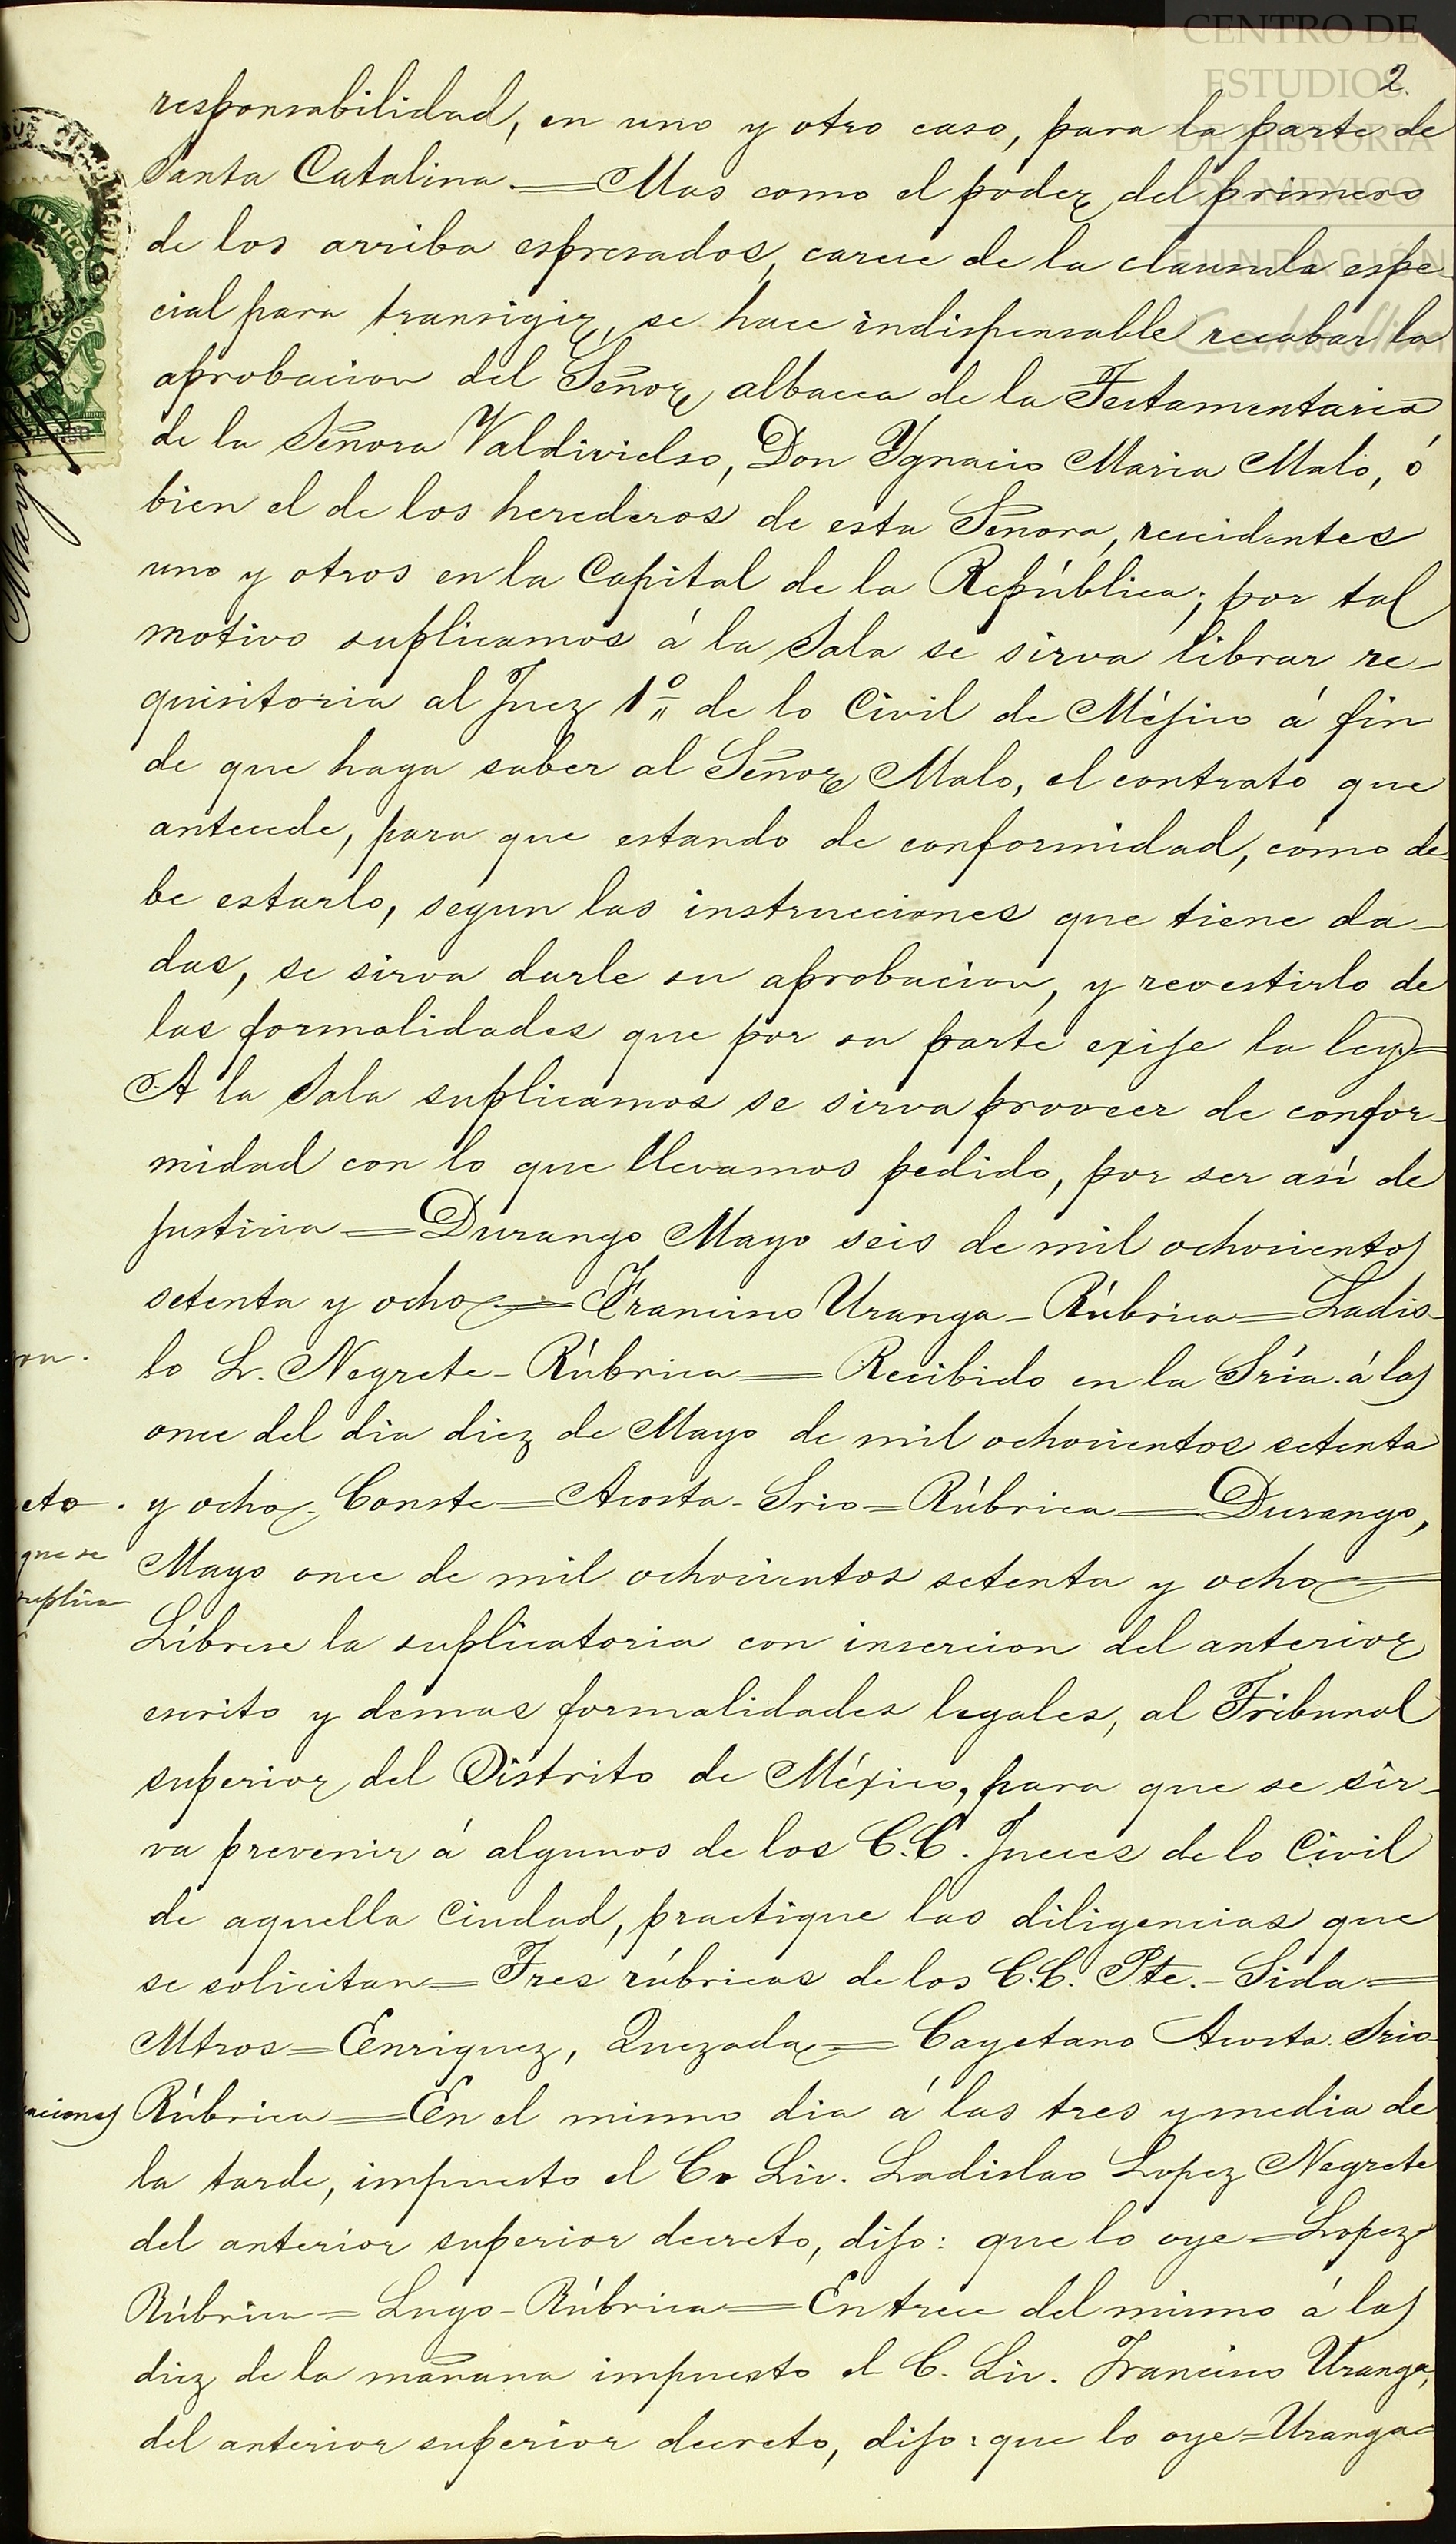 CENTRO DE
ESTUDIOS
DE HISTORIA
DE MEXICO
FUNDACIÓN
2.
responsabilidad, en uno y otro caso, para la parte de
Santa Catalina.=Mas como el poder del primero
de los arriba espresados, carece de la clausula espe-
cial para transigir, se hace indispensable recabar la
aprobacion del Señor albacea de la Testamentaria
de la Señora Valdivielso, Don Ygnacio Maria Malo, ó
bien el de los herederos de esta Señora, recidentes
uno y otros en la Capital de la República; por tal
motivo suplicamos á la Sala se sirva librar re-
quisitoria al Juez 1º de lo Civil de Méjico á fin
de que haga saber al Señor Malo, el contrato que
antecede, para que estando de conformidad, como de-
be estarlo, segun las instrucciones que tiene da-
das, se sirva darle su aprobacion, y revestirlo de
las formalidades que por su parte exije la ley.=
A la Sala suplicamos se sirva proveer de confor-
midad con lo que llevamos pedido, por ser así de
justicia=Durango Mayo seis de mil ochocientos
setenta y ocho=Francisco Uranga-Rúbrica=Ladis-
lo L. Negrete-Rúbrica=Recibido en la Sría. á las
once del dia diez de Mayo de mil ochocientos setenta
y ocho. Conste=Acosta-Srio=Rúbrica=Durango,
Mayo once de mil ochocientos setenta y ocho=
Líbrese la suplicatoria con insercion del anterior
escrito y demas formalidades legales, al Tribunal
superior del Distrito de México, para que se sir-
va prevenir á algunos de los C.C. Jueces de lo Civil
de aquella Ciudad, practique las diligencias que
se solicitan=Tres rúbricas de los C.C. Pte.-Sida=
Mtros=Enriquez, Quezada=Cayetano Acosta. Srio-
Rúbrica=En el mismo dia á las tres y media de
la tarde, impuesto el C. Lic. Ladislao Lopez Negrete
del anterior superior decreto, dijo: que lo oye=Lopez
Rúbrica=Lugo-Rúbrica=En trece del mismo á las
diez de la mañana impuesto el C. Lic. Francisco Uranga,
del anterior superior decreto, dijo: que lo oye=Uranga=
MEXICO
Mayo
eto.
que se
suplica
aciones